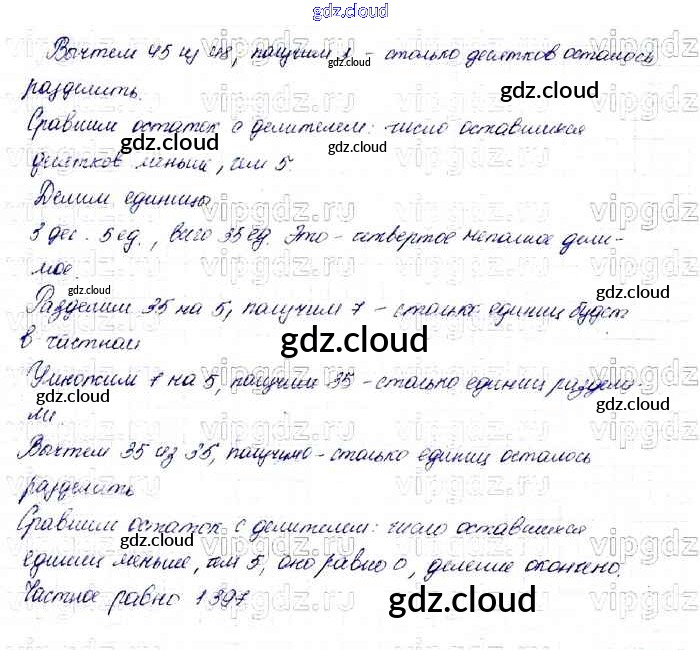 gdz.cloud
Вычтем 45 из 48, получим 1 - столько десятков осталось
разделить.
Сравним остаток с делителем: число оставшихся
десятков меньше, чем 5.
Делим единицы
3 дес. 5 ед., всего 35 ед. Это - четвертое неполное дели-
мое.
Разделим 35 на 5, получим 7 - столько единиц будет
в частном
Умножим 7 на 5, получим 35 - столько единиц раздели-
ли.
Вычтем 35 из 35, получим 0 - столько единиц осталось
разделить
Сравним остаток с делителем: число оставшихся
единиц меньше, чем 5, оно равно 0, деление окончено.
Частное равно 1397